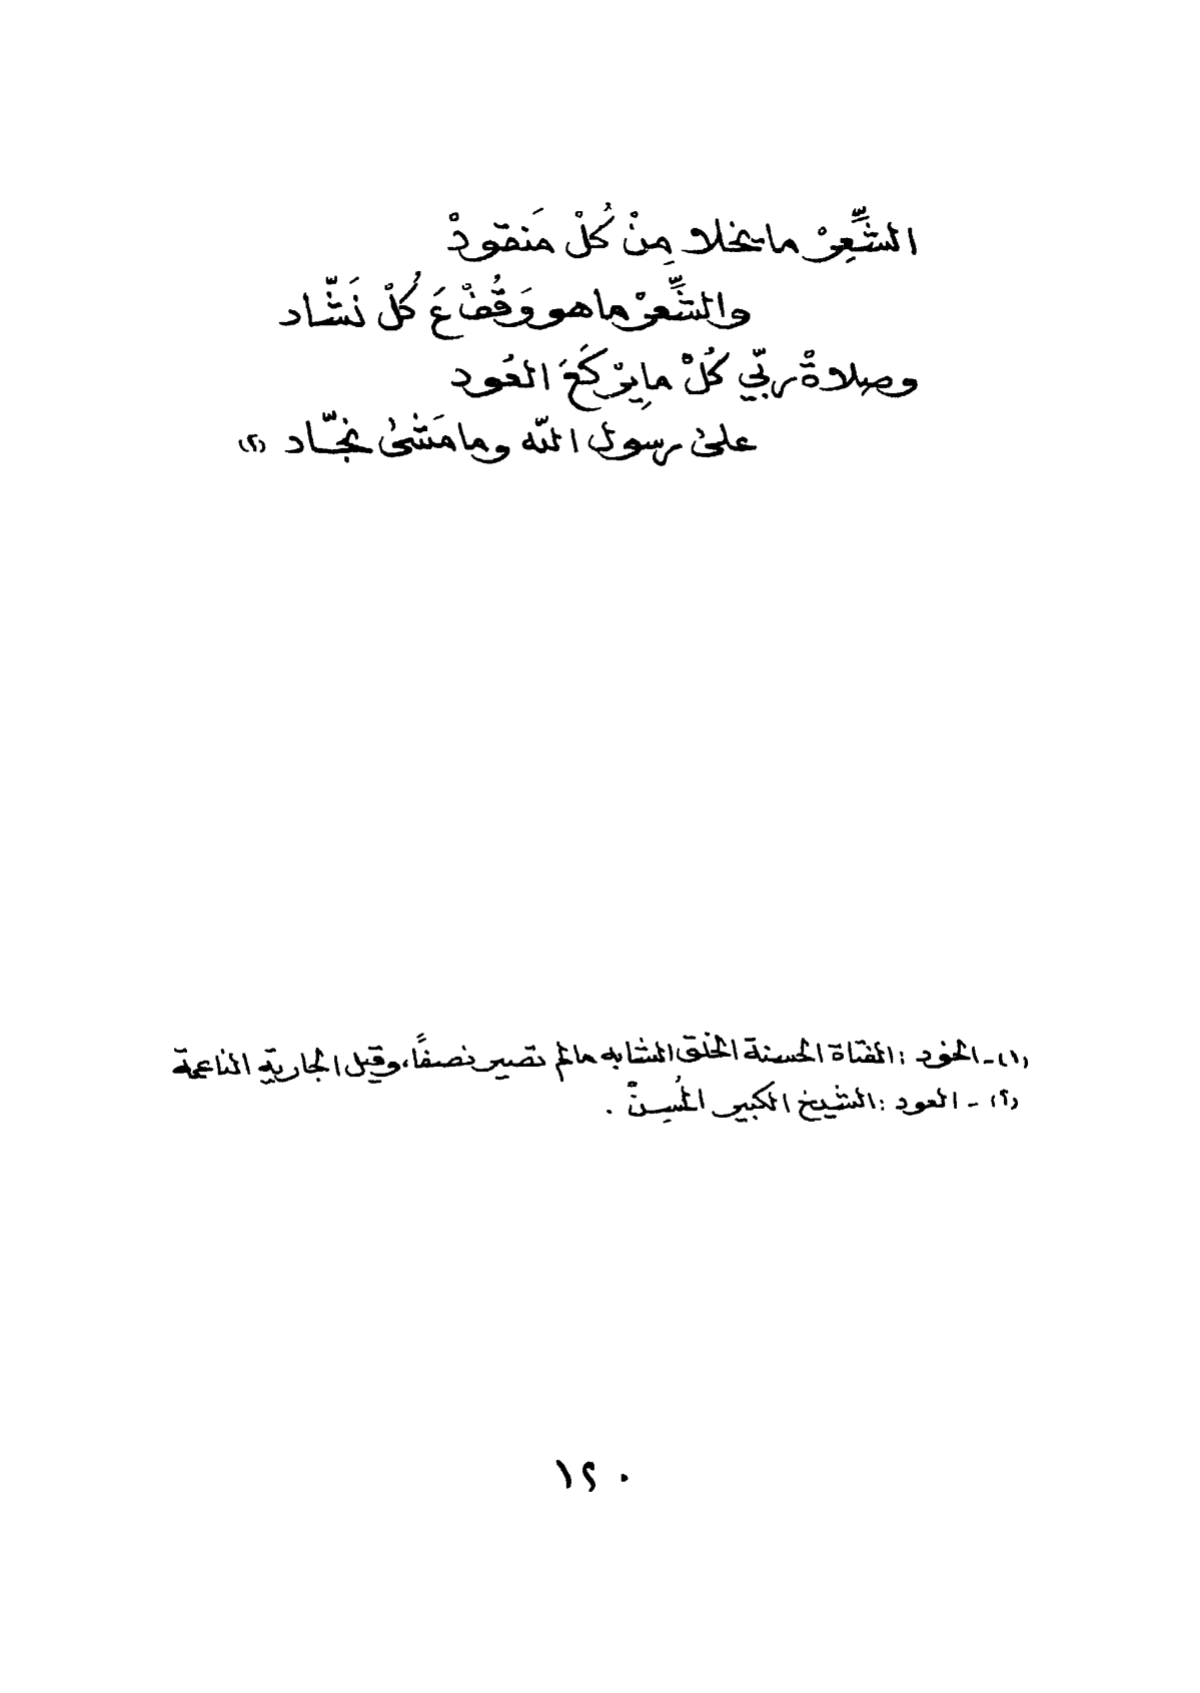 الشِّعِرْ ما يخلا مِنْ كُلْ مَنقودْ
والشِّعرْ ماهو وَقُفْ عَ كُلْ نَشَّاد
وصلاةْ ربّي كُلْ ما يِرْكَعَ العُود
علىٰ رسول اللّه وما مَشىٰ نجَّاد (٢)
(١) - الخود : الفتاة الحسنة الخلق الشابه مالم تصير نصفاً، وقيل الجارية الناعمة
(٢) - العود : الشيخ الكبير المُسِنْ .
١٢٠